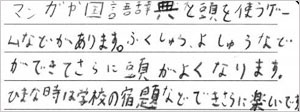 マンガや国語辞典と頭を使うゲー
ムなどがあります。ふくしゅう、よしゅうなど
ができてさらに頭がよくなります。
ひまな時は学校の宿題などできさらに楽しいで